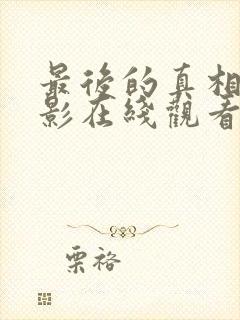 最後的真相
影在綫觀看
栗裕